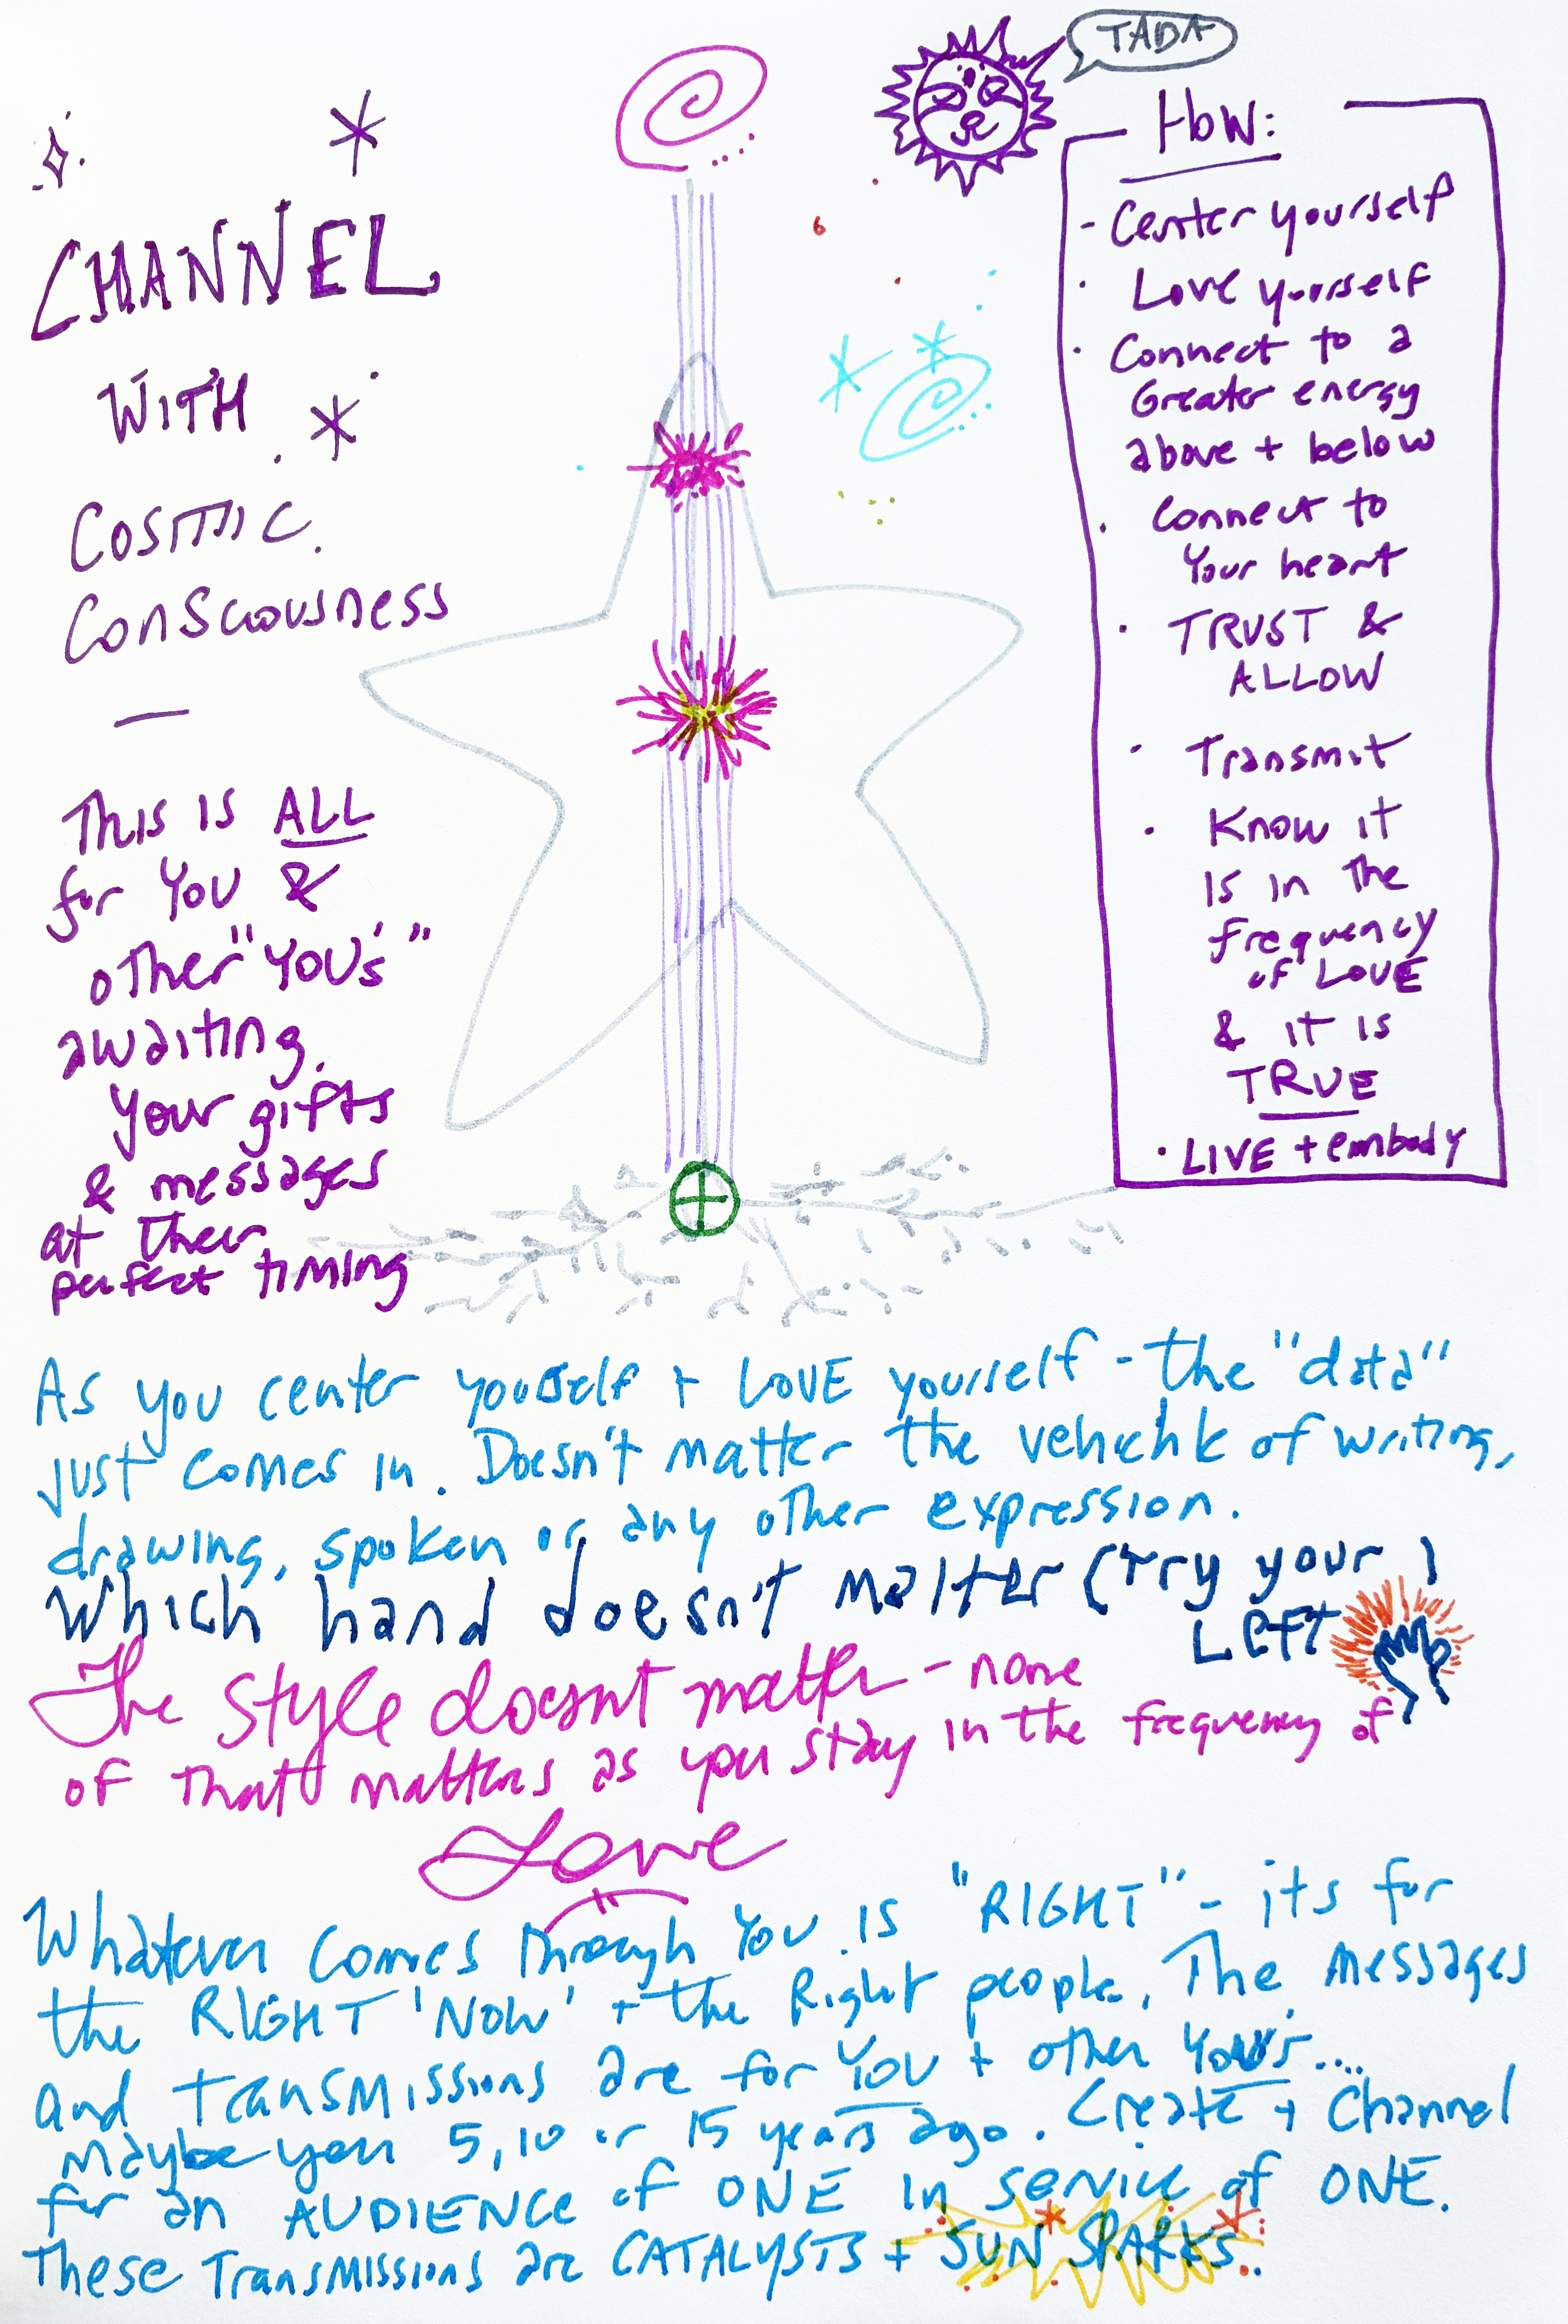 TADA
CHANNEL
WITH
COSMIC
CONSCIOUSNESS
—
This is ALL
for YOU &
other "YOU's"
awaiting
your gifts
& messages
at their
perfect timing
HOW:
- Center yourself
· Love yourself
· Connect to a
Greater energy
above + below
· Connect to
Your heart
· TRUST &
ALLOW
· Transmit
· Know it
is in the
frequency
of LOVE
& it is
TRUE
· LIVE + embody
As you center yourself + LOVE yourself - the "data"
just comes in. Doesn't matter the vehichle of writing,
drawing, spoken or any other expression.
Which hand doesn't matter (try your
LEFT)
The style doesnt matter - none
of that matters as you stay in the frequency of
Love
Whatever comes through YOU is "RIGHT" - its for
the RIGHT 'NOW' + the Right people. The messages
and transmissions are for YOU + other YOU's....
maybe you 5, 10 or 15 years ago. Create + Channel
for an AUDIENCE of ONE in service of ONE.
These Transmissions are CATALYSTS + SUN SPARKS.